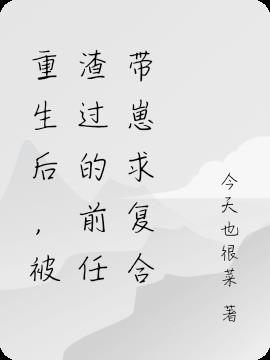 重生后，被
渣过的前任
带崽求复合
今天也很菜 著